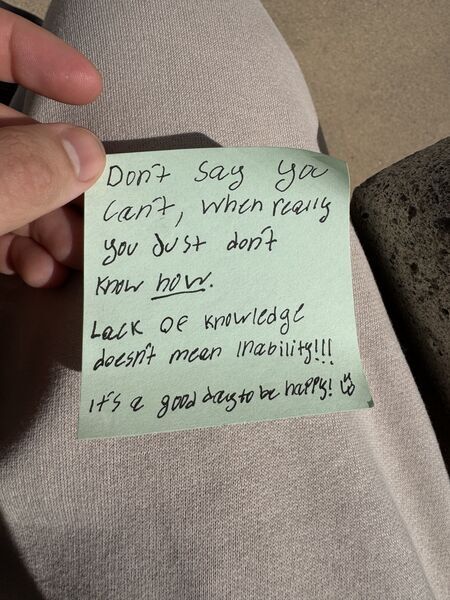 Don't say you
can't, when really
you Just don't
know how.
Lack of knowledge
doesn't mean inability!!!
it's a good day to be happy!